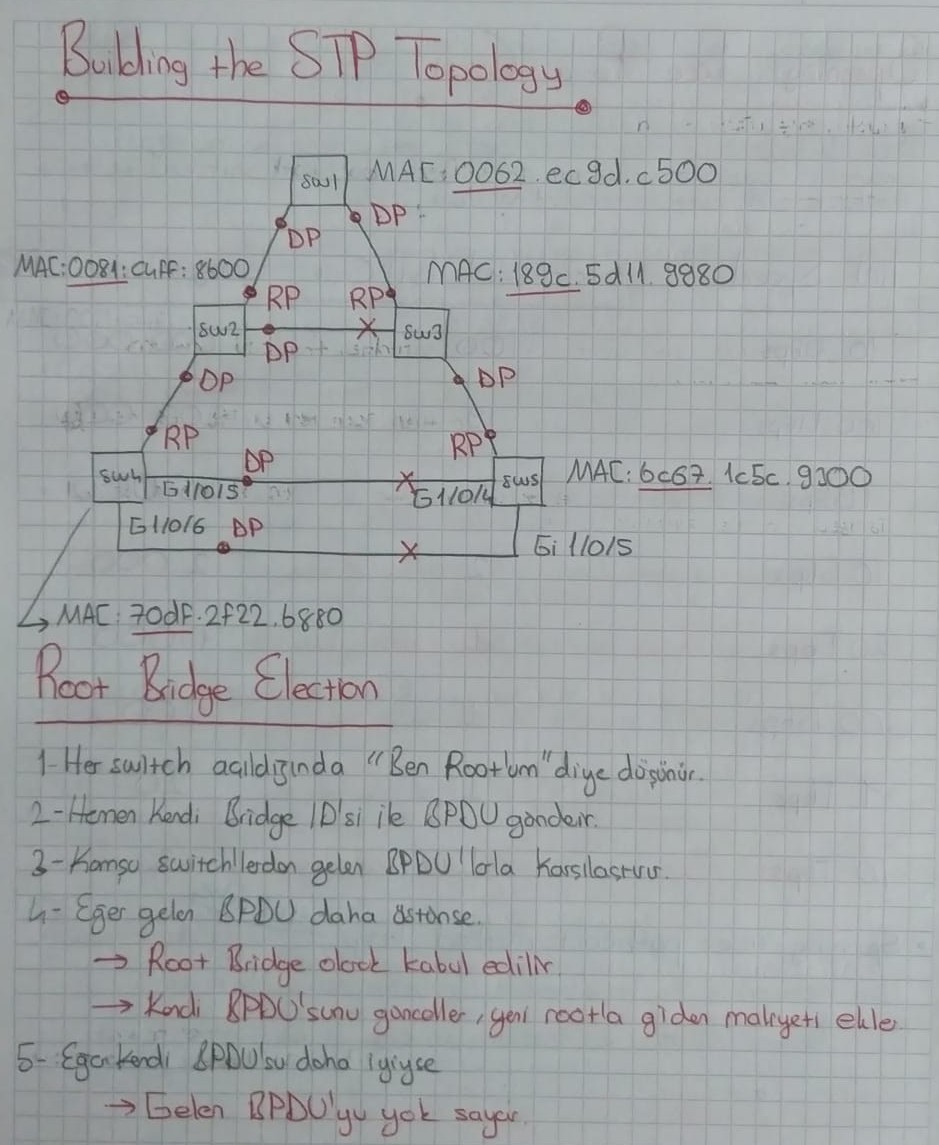 Building the STP Topology
SW1
MAC: 0062.ec9d.c500
DP
DP
MAC:0081:C4FF:8600
MAC: 189c.5d11.9980
RP
RP
SW2
SW3
DP
DP
DP
RP
RP
DP
SW4
SW5
MAC: 6c67.1c5c.9300
G1/0/5
G1/0/4
G1/0/6
DP
Gi 1/0/5
MAC: 70dF.2f22.6880
Root Bridge Election
1-Her switch açıldığında "Ben Root'um" diye düşünür.
2-Hemen Kendi Bridge ID'si ile BPDU gönderir.
3-Komşu switch'lerden gelen BPDU'larla Karşılaştırır.
4- Eğer gelen BPDU daha üstünse.
→ Root Bridge olarak kabul edilir
→ Kendi BPDU'sunu günceller, yeni rootla giden maliyeti ekler
5- Eğer kendi BPDU'su daha iyiyse
→ Gelen BPDU'yu yok sayar.